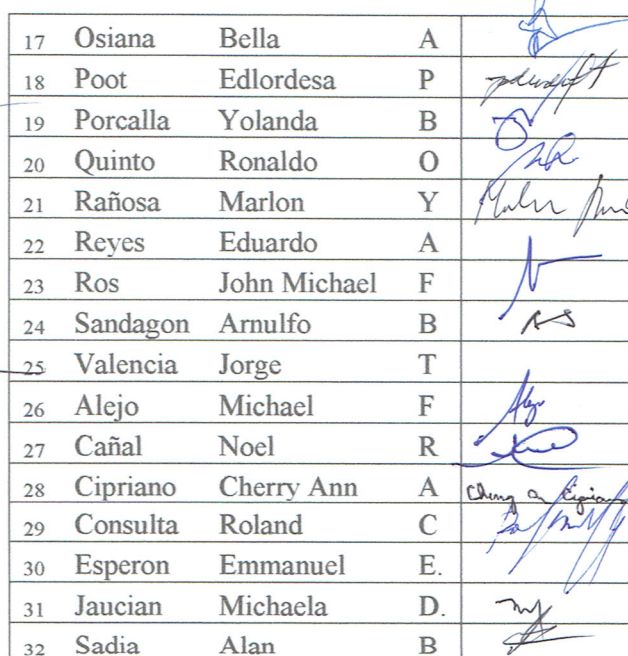 17 Osiana Bella A
18 Poot Edlordesa P
19 Porcalla Yolanda B
20 Quinto Ronaldo O
21 Rañosa Marlon Y
22 Reyes Eduardo A
23 Ros John Michael F
24 Sandagon Arnulfo B
25 Valencia Jorge T
26 Alejo Michael F
27 Cañal Noel R
28 Cipriano Cherry Ann A
29 Consulta Roland C
30 Esperon Emmanuel E.
31 Jaucian Michaela D.
32 Sadia Alan B